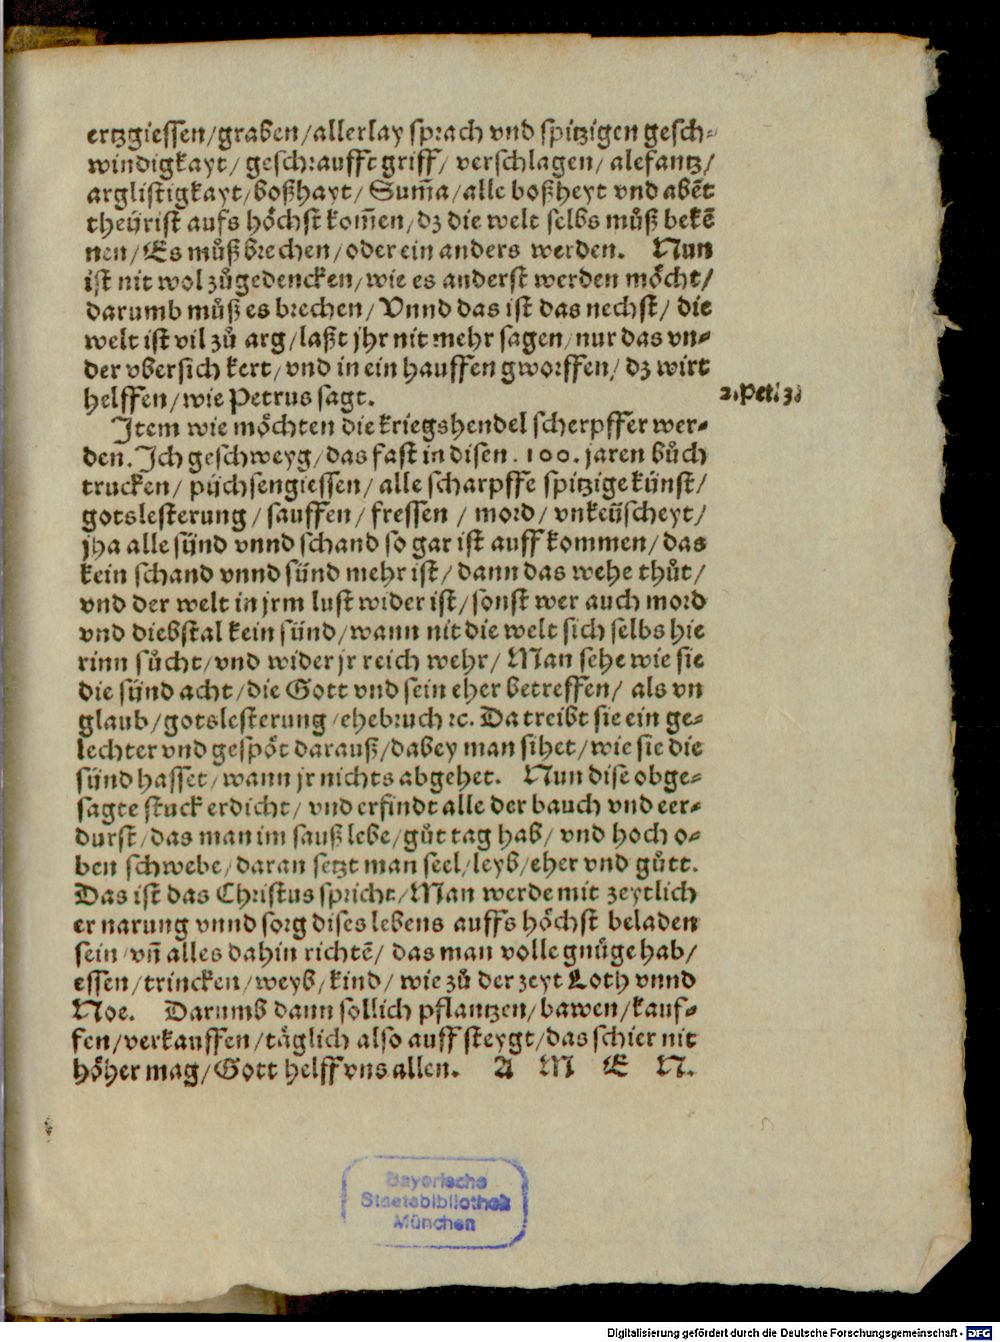 ertzgiessen/graben/allerlay sprach vnd spitzigen gesch⸗
windigkayt/ geschraufft griff/ verschlagen/ alefantz/
arglistigkayt/boßhayt/ Sum̃a/alle boßheyt vnd abẽt
theürist aufs höchst kom̃en/dz die welt selbs můß bekẽ
nen/Es můß brechen/oder ein anders werden. Nun
ist nit wol zůgedencken/wie es anderst werden möcht/
darumb můß es brechen/Vnnd das ist das nechst/ die
welt ist vil zů arg/laßt jhr nit mehr sagen/nur das vn⸗
der vbersich kert/vnd in ein hauffen gworffen/ dz wirt
helffen/wie Petrus sagt.
2.Pet. 3.
Item wie möchten die kriegshendel scherpffer wer⸗
den. Ich geschweyg/das fast in disen .100. jaren bůch
trucken/ püchsengiessen/ alle scharpffe spitzige künst/
gotslesterung/ sauffen/ fressen / mord/ vnkeüscheyt/
jha alle sünd vnnd schand so gar ist auff kommen/das
kein schand vnnd sünd mehr ist/dann das wehe thůt/
vnd der welt in jrm lust wider ist/sonst wer auch mord
vnd diebstal kein sünd/wann nit die welt sich selbs hie
rinn sůcht/vnd wider jr reich wehr/ Man sehe wie sie
die sünd acht/die Gott vnd sein eher betreffen/ als vn
glaub/gotslesterung/ehebruch ꝛc. Da treibt sie ein ge⸗
lechter vnd gespöt darauß/dabey man sihet/wie sie die
sünd hasset/wann jr nichts abgehet. Nun dise obge⸗
sagte stuck erdicht/ vnd erfindt alle der bauch vnd eer⸗
durst/das man im sauß lebe/gůt tag hab/ vnd hoch o⸗
ben schwebe/daran setzt man seel/leyb/eher vnd gůtt.
Das ist das Christus spricht/Man werde mit zeytlich
er narung vnnd sorg dises lebens auffs höchst beladen
sein/vñ alles dahin richtẽ/ das man volle gnůge hab/
essen/trincken/weyb/kind/ wie zů der zeyt Loth vnnd
Noe. Darumb dann sollich pflantzen/bawen/kauf⸗
fen/verkauffen/täglich also auff steygt/das schier nit
höher mag/Gott helff vns allen. A M E N.
Bayerische
Staatsbibliothek
München
Digitalisierung gefördert durch die Deutsche Forschungsgemeinschaft - DFG